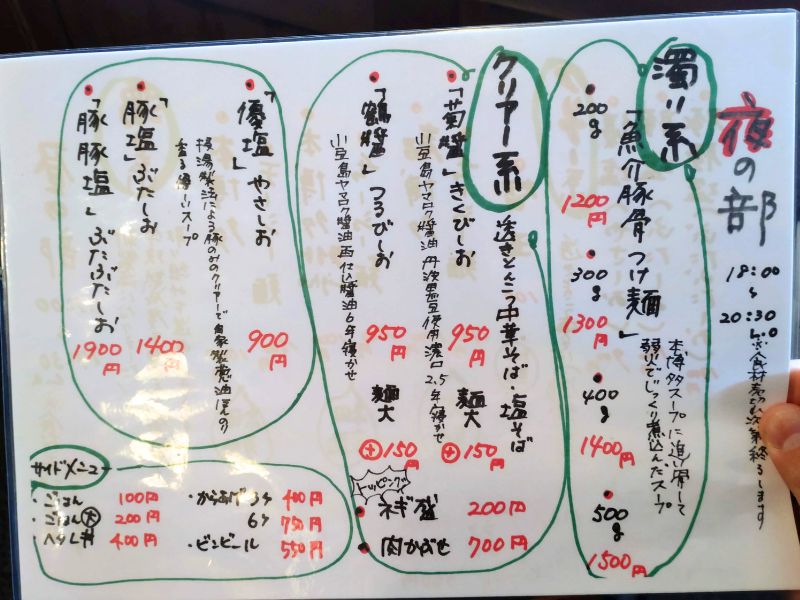 夜の部
18:00
〜
20:30
L.O
※食材売切れ次第終了します
濁り系
「魚介豚骨つけ麺」
本博多スープに追い骨して
弱火でじっくり煮込んだスープ
200g
1200円
300g
1300円
400g
1400円
500g
1500円
クリアー系
透きとんこつ中華そば・塩そば
「菊醤」きくびしお
小豆島ヤマロク醤油 丹波黒豆使用濃口2.5年寝かせ
950円
麺大
+150円
「鶴醤」つるびしお
小豆島ヤマロク醤油 再仕込醤油 6年寝かせ
950円
麺大
+150円
トッピング
ネギ盛 200円
肉かぶせ 700円
「優塩」やさしお
香る優しいスープ
900円
「豚塩」ぶたしお
1400円
「豚豚塩」ぶたぶたしお
1900円
サイドメニュー
・ごはん 100円
・ごはん大 200円
・ヘタレ丼 400円
・からあげ3ケ 400円
6ケ 750円
・ビンビール 550円